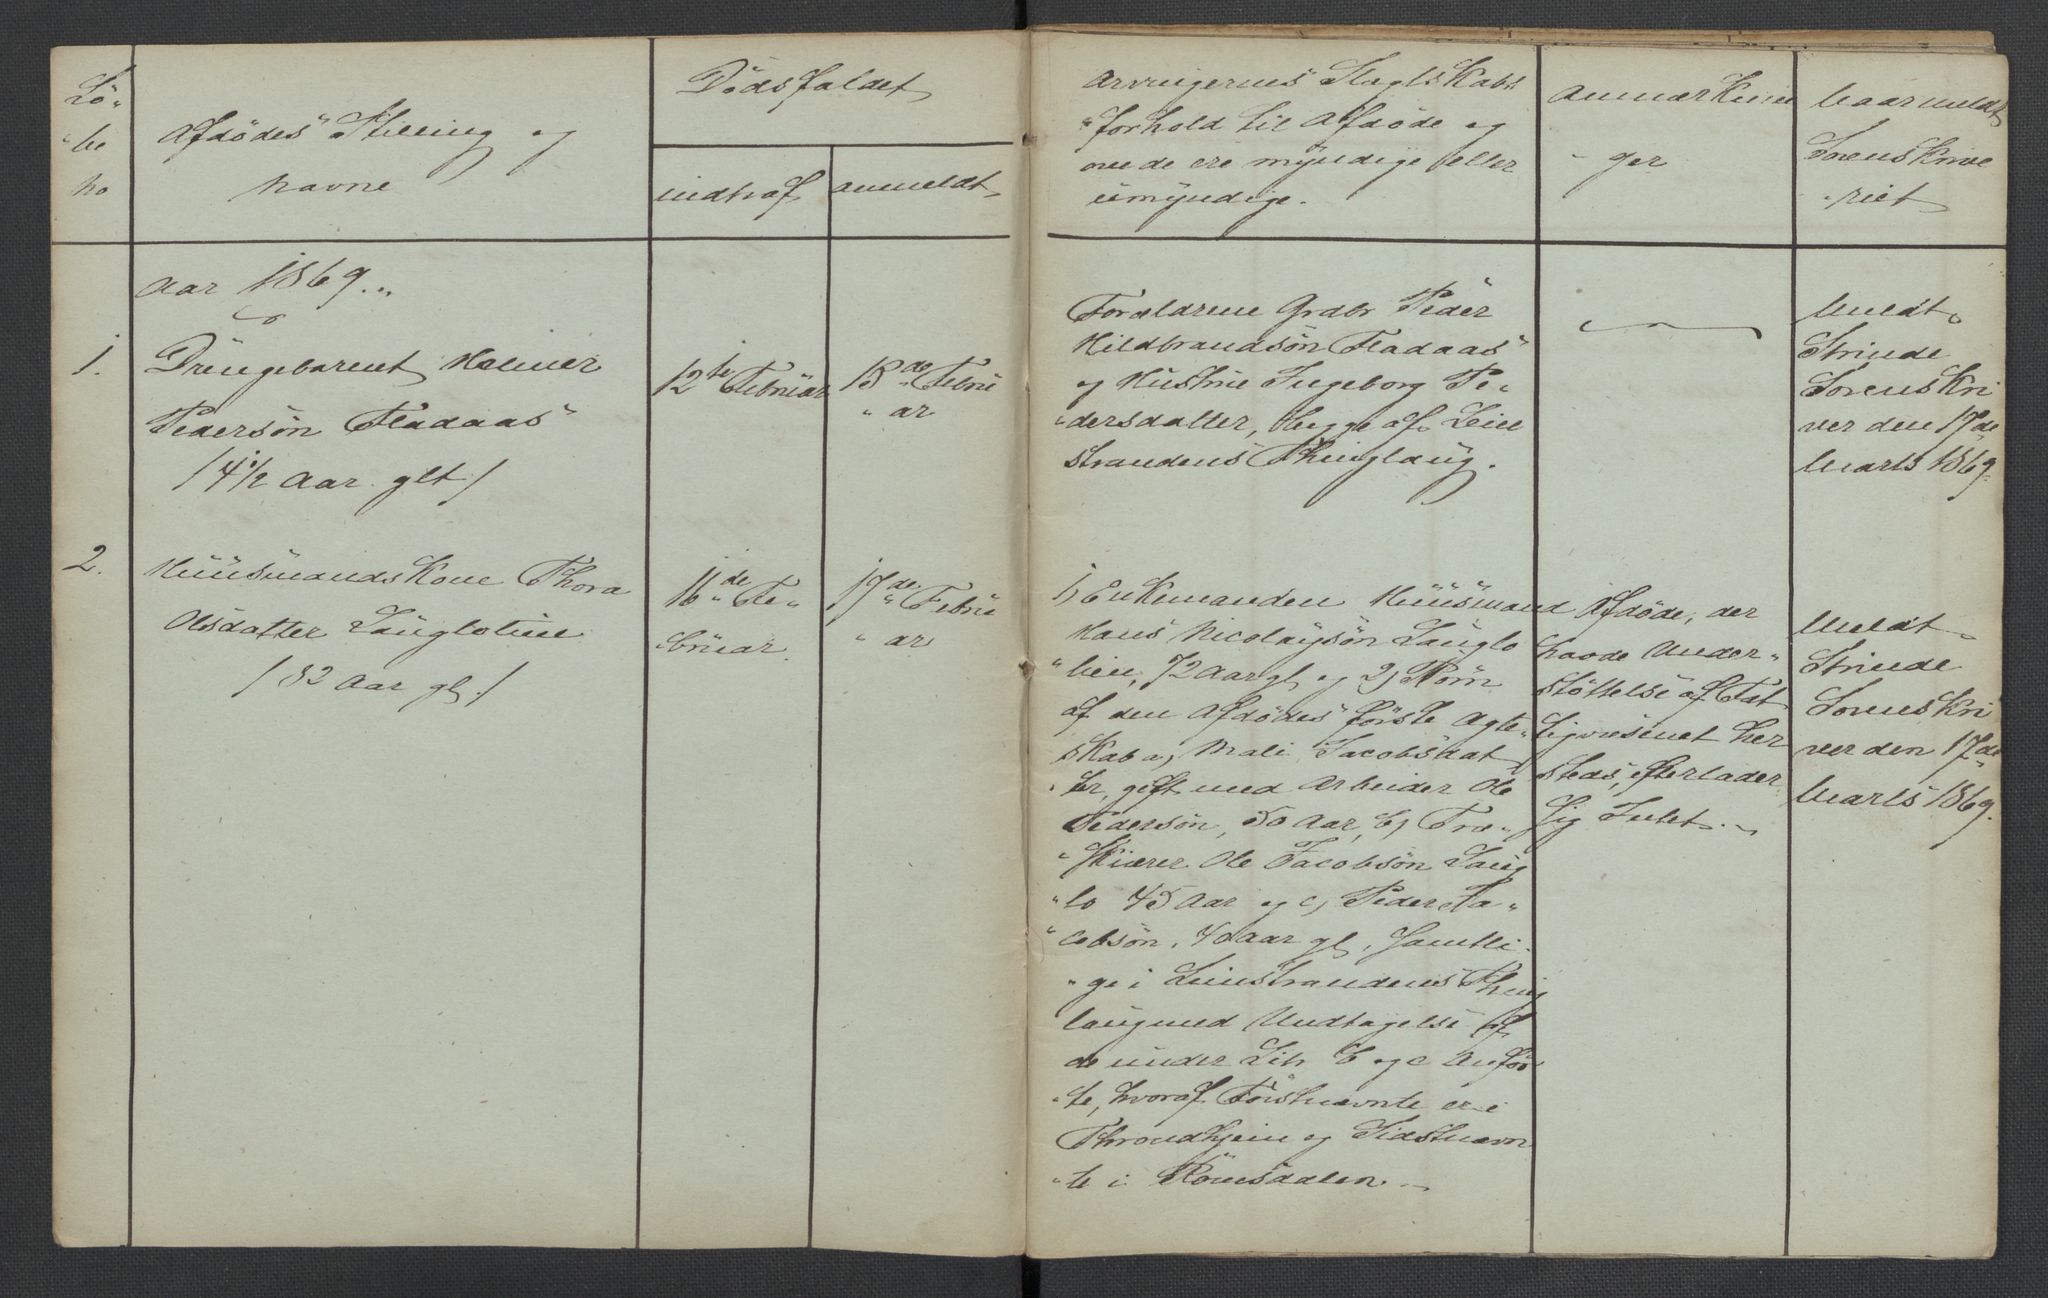 Lö-
be
no
Afdödes Stilling og
navne
Dödsfaldet
indtraf
anmeldt
Arvingernes Slægtskabs
forhold til Afdöde og
om de ere myndige eller
umyndige.
Anmærknin
ger
Naar meldt
Sorenskrive
riet
Aar 1869.
1.
Drengebarnet
Pedersön Fladaas
/ 4 1/2 Aar glt /
12te Februar
18de Febru
ar
Forældrene Grdbr Peder
Hildbrandsön Fladaas
og Hustrue Ingeborg Pe-
dersdatter, begge af Lein
strandens Thinglaug.
Meldt
Strinde
Sorenskri
ver den 17de
Marts 1869.
2.
Huusmandskone Thora
Olsdatter Lauglolien
/ 82 Aar gl. /
16de Fe-
bruar.
17de Febru
ar
1) Enkemanden Huusmand
Hans Nicolaysön Lauglo
lien, 72 Aar gl og 2) Börn
af den Afdödes förste Ægte-
skab a) Mali Jacobsdat
ter, gift med Arbeider Ole
Pedersön, 50 Aar, b) Træ-
skiærer Ole Jacobsön Laug
lo 45 Aar og c) Peder Ja-
cobsön, 40 Aar gl, samtli-
ge i Leinstrandens Thing
laug med Undtagelse af
de under Litr b og c Anför
te, hvoraf Förstnævnte er i
Throndhjem og Sidstnævn
te i Romsdalen.
Afdöde, der
havde Under-
stöttelse af Fat
tigvæsenet her
steds, efterlader
sig Intet.
Meldt
Strinde
Sorenskri
ver den 17de
Marts 1869.